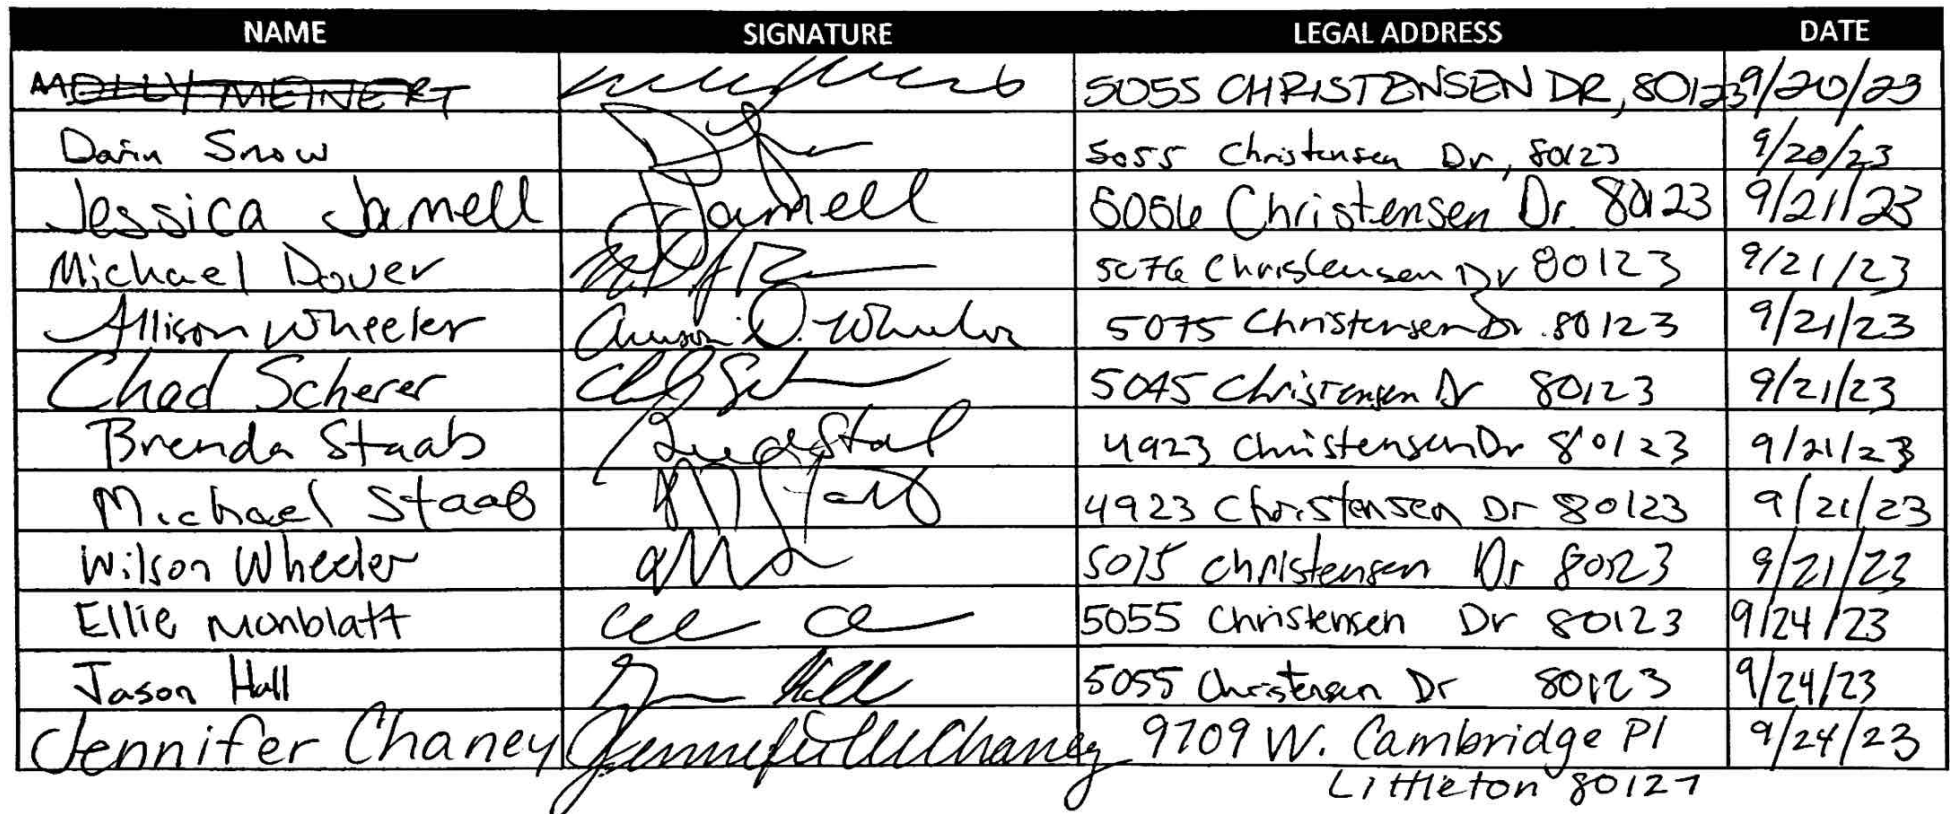 NAME SIGNATURE LEGAL ADDRESS DATE
MOLLY MEINERT 5055 CHRISTENSEN DR, 80123 9/20/23
Darin Snow 5055 Christensen Dr, 80123 9/20/23
Jessica Jamell JJamell 5056 Christensen Dr. 80123 9/21/23
Michael Dover 5076 Christensen Dr 80123 9/21/23
Allison Wheeler Allison D. Wheeler 5075 Christensen Dr. 80123 9/21/23
Chad Scherer 5045 Christensen Dr 80123 9/21/23
Brenda Staab 4923 Christensen Dr 80123 9/21/23
Michael Staab 4923 Christensen Dr 80123 9/21/23
Wilson Wheeler 5075 Christensen Dr 80123 9/21/23
Ellie Monblatt 5055 Christensen Dr 80123 9/24/23
Jason Hall Hall 5055 Christensen Dr 80123 9/24/23
Jennifer Chaney Chaney 9709 W. Cambridge Pl 9/24/23
Littleton 80127